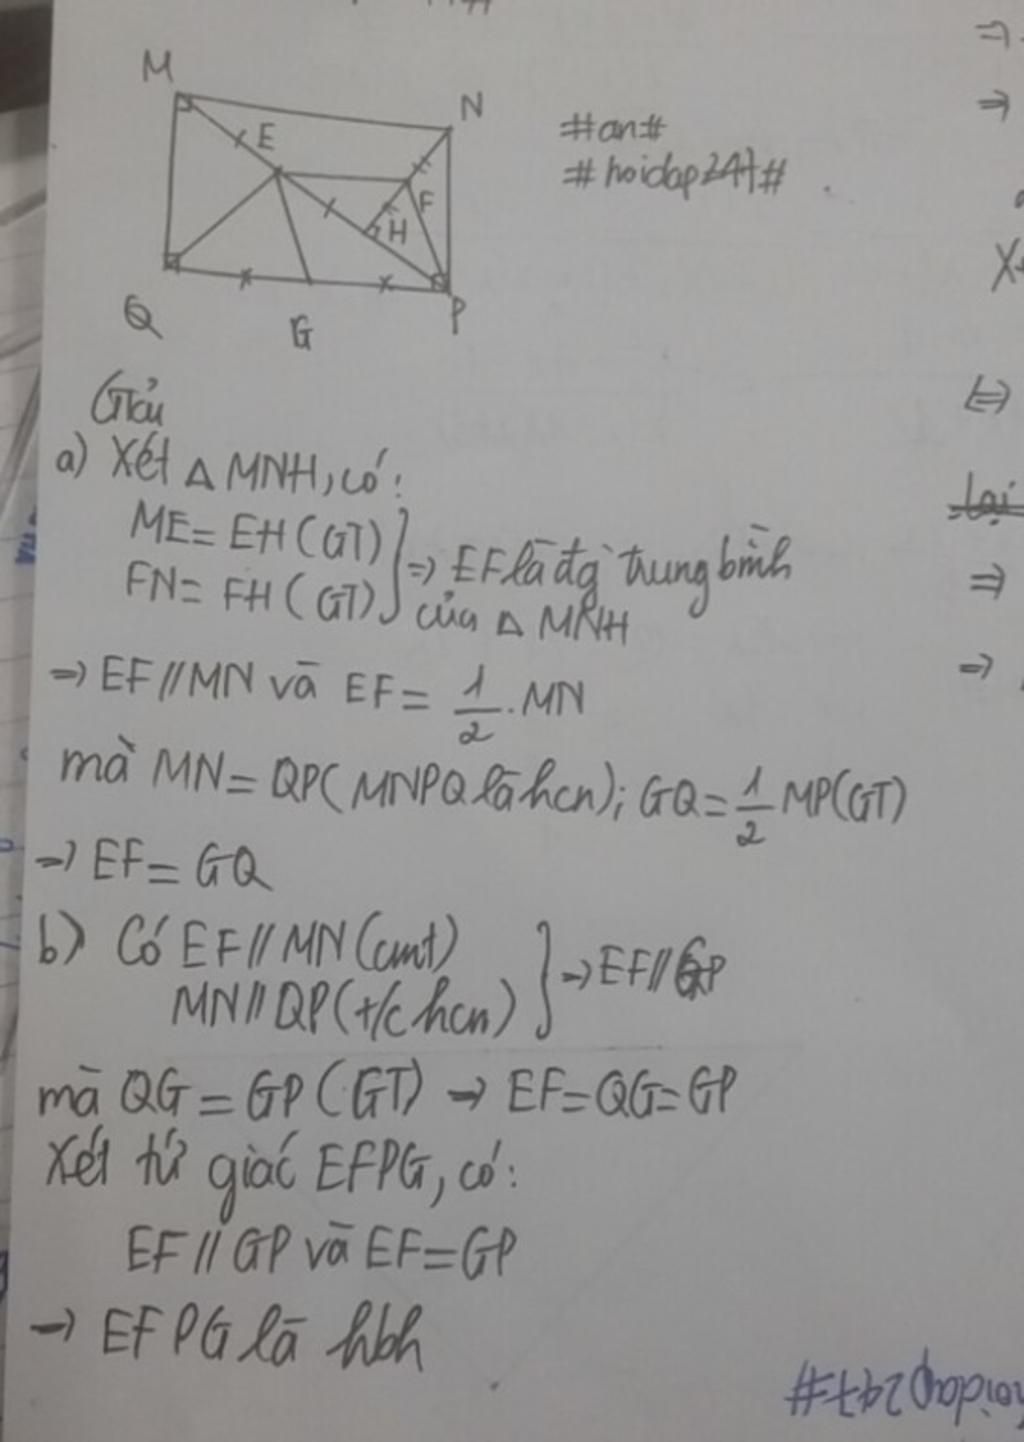 M
N
E
F
H
Q
G
P
#an#
#hoidap247#
Giải
a) Xét △ MNH, có:
ME = EH (GT)
FN = FH (GT) } => EF là đg trung bình
của △ MNH
=> EF // MN và EF = 1/2 . MN
mà MN = QP (MNPQ là hcn); GQ = 1/2 MP (GT)
=> EF = GQ
b) Có EF // MN (cmt)
MN // QP (t/c hcn) } => EF // GP
mà QG = GP (GT) → EF = QG = GP
Xét tứ giác EFPG, có:
EF // GP và EF = GP
→ EFPG là hbh
=>
=>
<=>
lại
=>
=>
hoidap247#